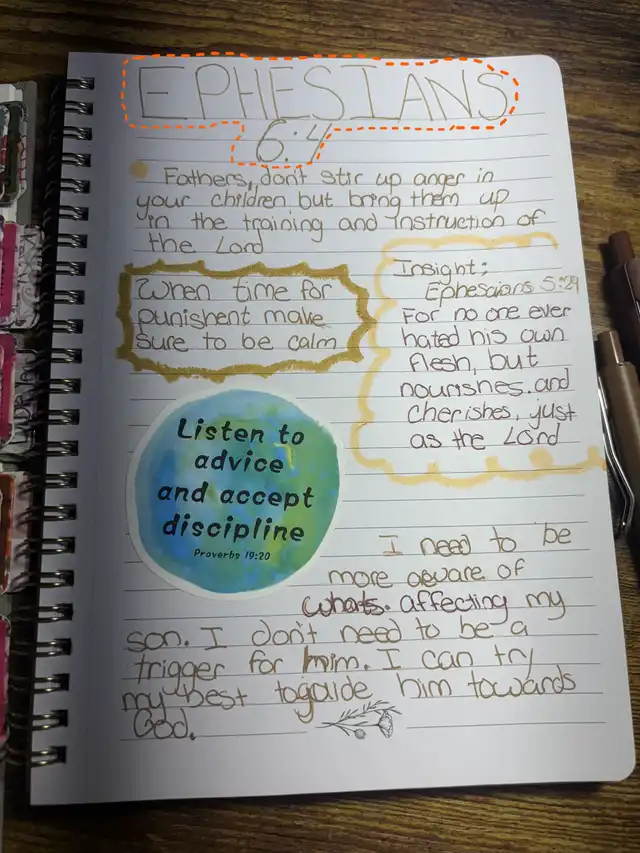 EPHESIANS
6:4
Fathers, don't stir up anger in
your children but bring them up
in the training and Instruction of
the Lord
When time for
punishent make
sure to be calm
Insight:
Ephesaians 5:29
For no one ever
hated his own
flesh, but
nourishes. and
cherishes, just
as the Lord
Listen to
advice
and accept
discipline
Proverbs 19:20
I need to be
more aware of
whats. affecting my
son. I don't need to be a
trigger for him. I can try
my best to guide him towards
God.